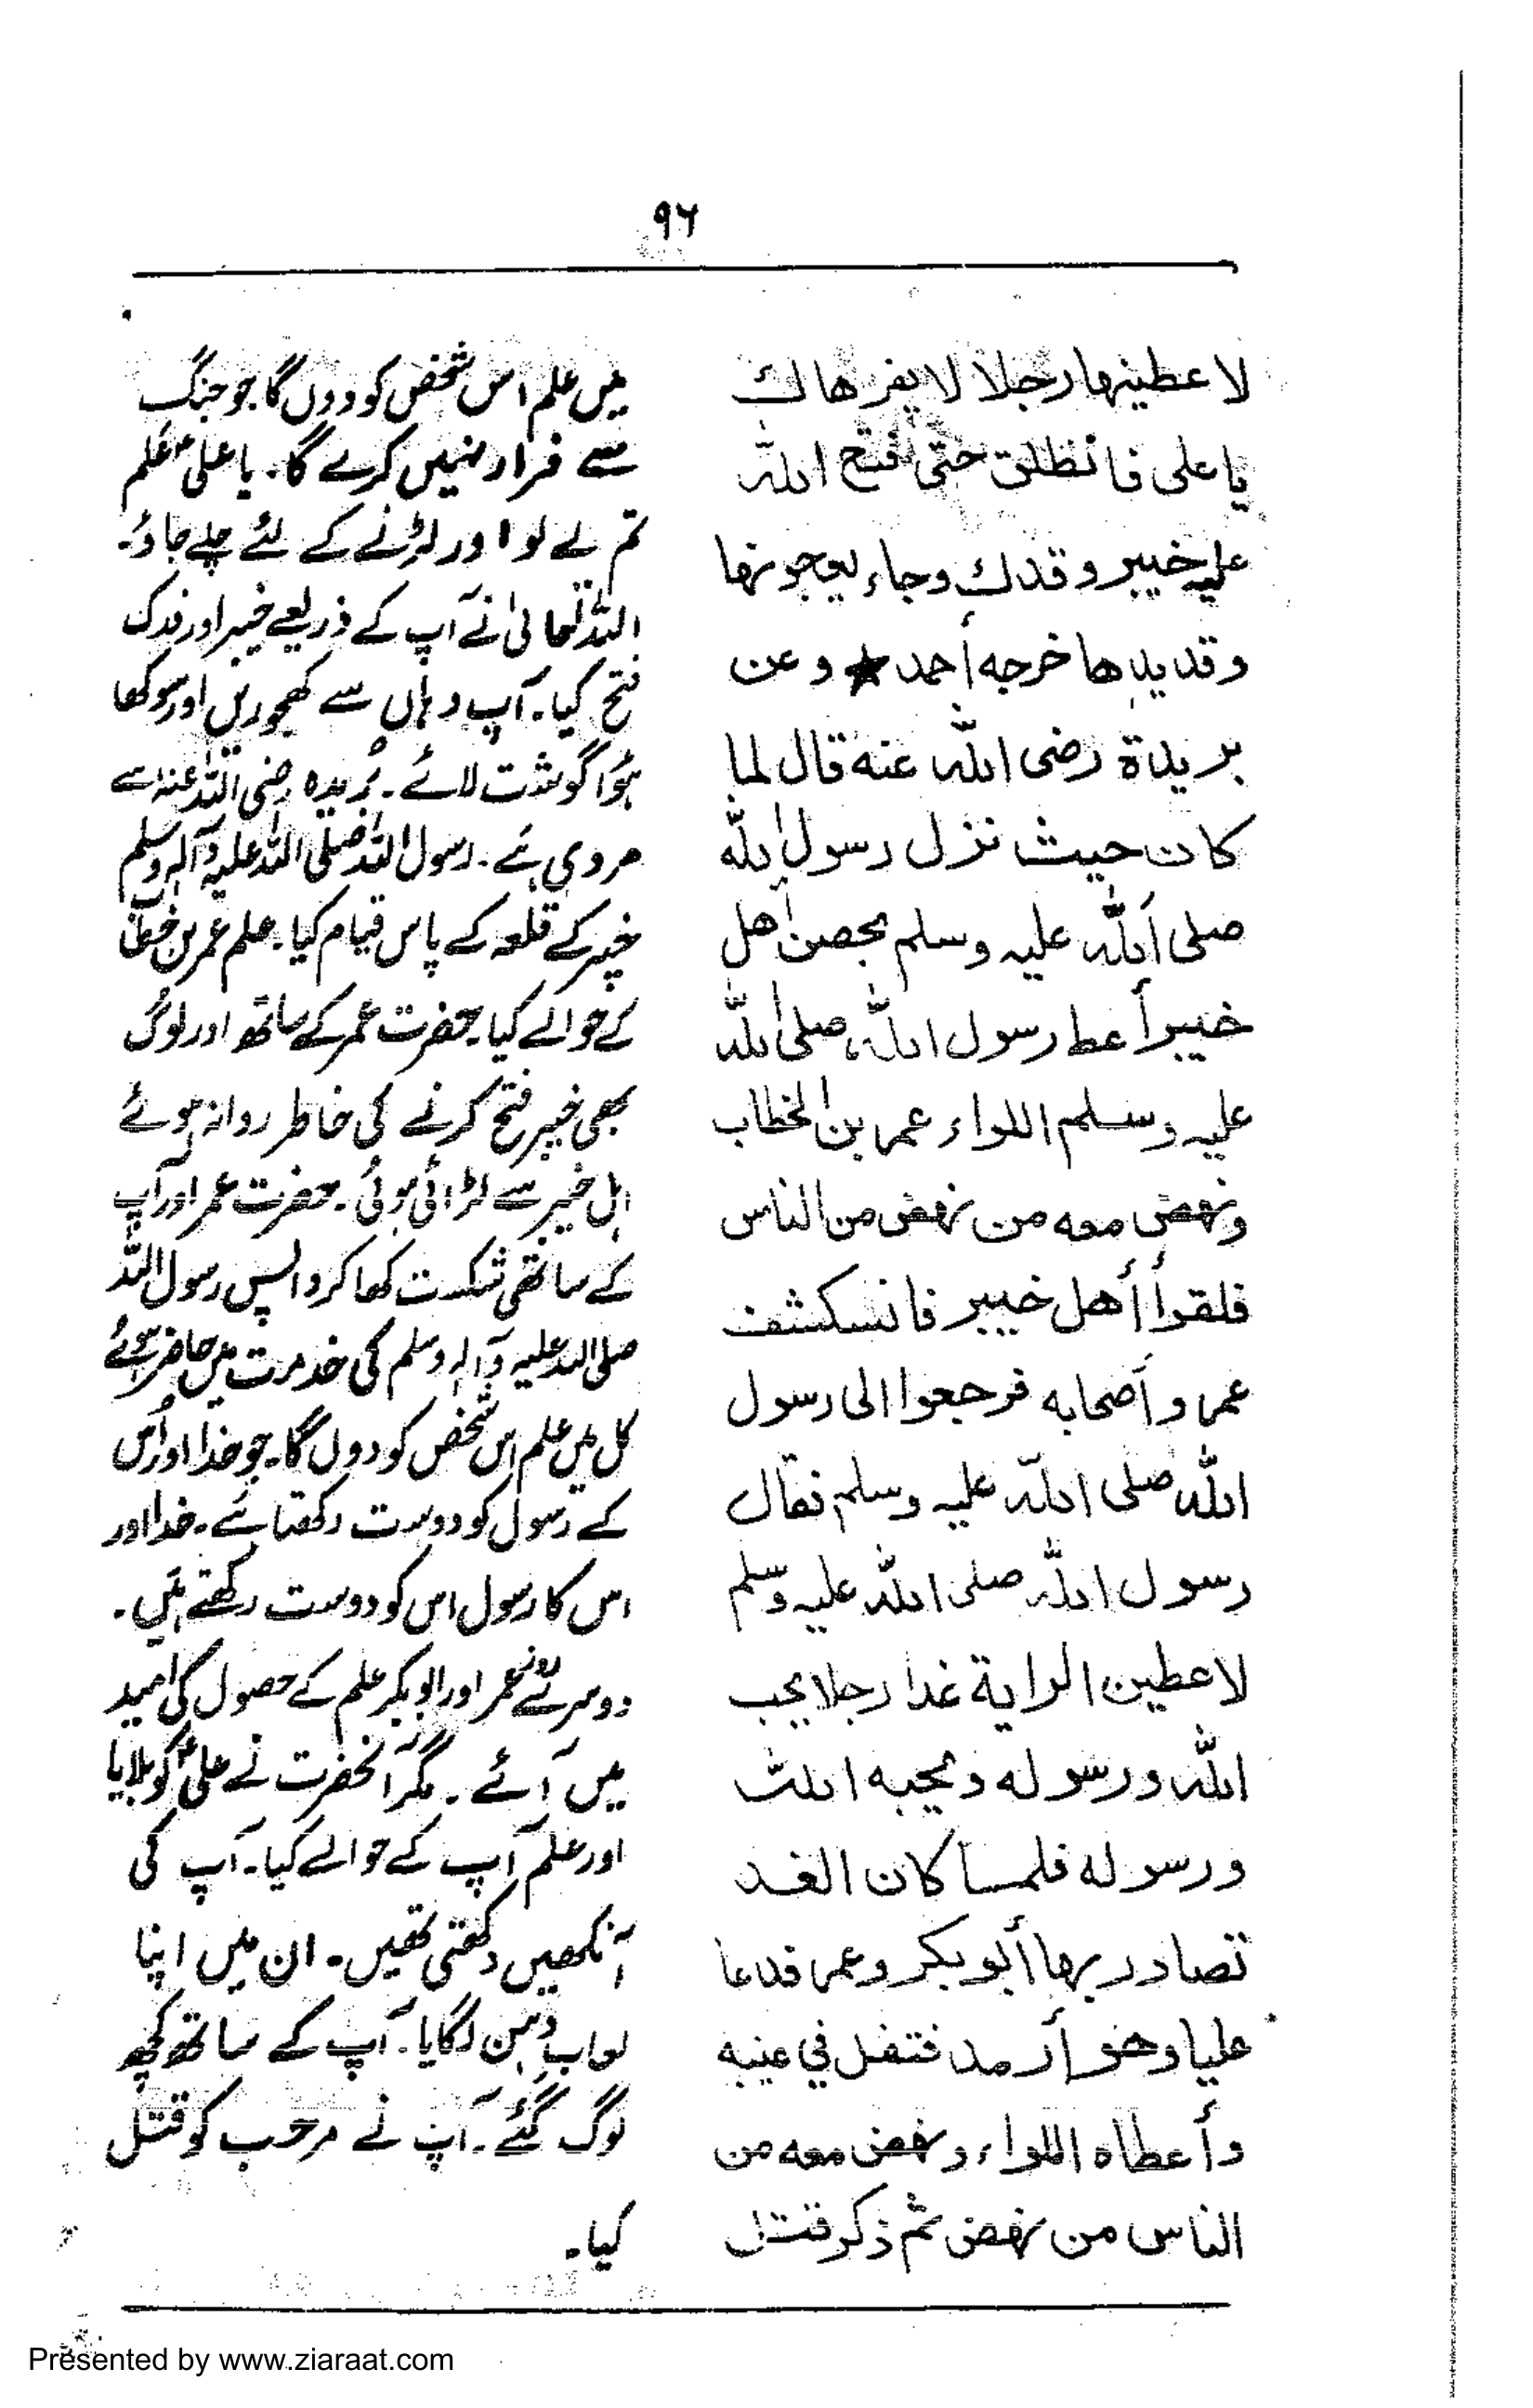 ۹۶
لاعطینھا رجلا لا یفر ھاك
یا علی فانطلق حتی فتح اللہ
علیہ خیبر و فدك وجاء بعجوتھا
وقدیدھا خرجه أحمد ★ وعن
بریدة رضی اللہ عنه قال لما
کان حیث نزل رسول اللہ
صلی اللہ علیہ وسلم بحصن أھل
خیبر أعطا رسول اللہ صلی اللہ
علیہ وسلم اللواء عمر بن الخطاب
ونھض معه من نھض من الناس
فلقوا أھل خیبر فانکشف
عمر وأصحابه فرجعوا الی رسول
اللہ صلی اللہ علیہ وسلم فقال
رسول اللہ صلی اللہ علیہ وسلم
لاعطین الرایة غدا رجلا یحب
اللہ ورسوله ویحبه اللہ
ورسوله فلما کان الغد
تصادر بھا أبو بکر وعمر فدعا
علیا وھو أرمد فتفل في عینیه
وأعطاہ اللواء ونھض معه من
الناس من نھض ثم ذکر قتل
میں علم اس شخص کو دوں گا جو جنگ
سے فرار نہیں کرے گا۔ یا علیؑ علم
تم لے لو اور لڑنے کے لئے چلے جاؤ۔
اللہ تعالیٰ نے آپ کے ذریعے خیبر اور فدک
فتح کیا۔ آپ وہاں سے کھجوریں اور سوکھا
ہؤا گوشت لائے۔ بُریدہ رضی اللہ عنہ سے
مروی ہے۔ رسول اللہ صلی اللہ علیہ وآلہ وسلم
خیبر کے قلعہ کے پاس قیام کیا۔ علم عمر بن خطاب
کے حوالے کیا۔ حضرت عمر کے ساتھ اور لوگ
بھی خیبر فتح کرنے کی خاطر روانہ ہوئے
اہل خیبر سے لڑائی ہوئی۔ حضرت عمر اور آپ
کے ساتھی شکست کھا کر واپس رسول اللہ
صلی اللہ علیہ وآلہ وسلم کی خدمت میں حاضر ہوئے
کل میں علم اس شخص کو دوں گا۔ جو خدا اور اُس
کے رسول کو دوست رکھتا ہے۔ خدا اور
اس کا رسول اس کو دوست رکھتے ہیں۔
دوسرے روز عمر اور ابوبکر علم کے حصول کی امید
میں آئے۔ مگر آنحضرت نے علیؑ کو بلایا
اور علم آپ کے حوالے کیا۔ آپ کی
آنکھیں دکھتی تھیں۔ ان میں اپنا
لعاب دہن لگایا۔ آپ کے ساتھ کچھ
لوگ گئے۔ آپ نے مرحب کو قتل
کیا۔
Presented by www.ziaraat.com